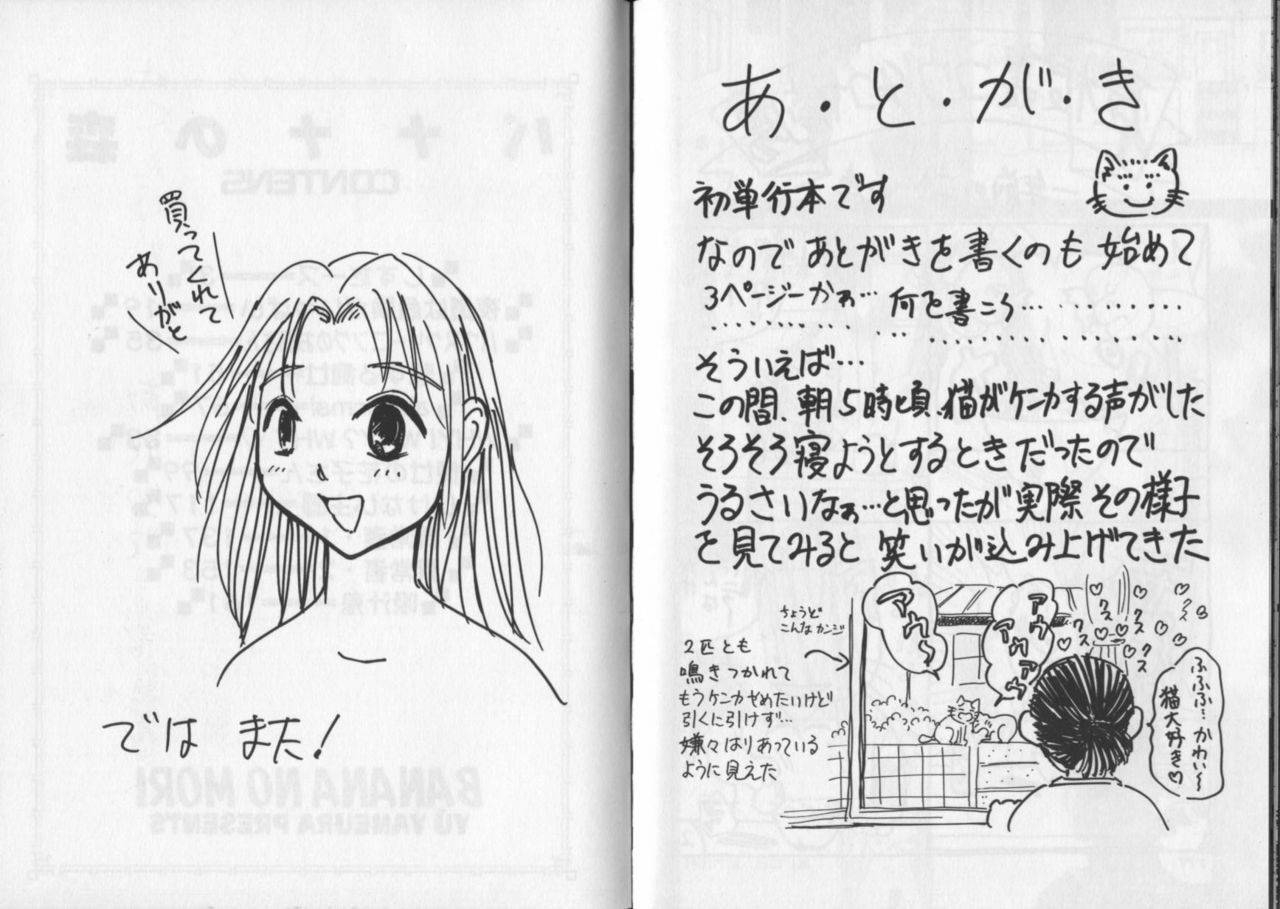 あ・と・が・き
初単行本です
なので あとがきを書くのも 始めて
3ページーかぁ… 何を書こう…
そういえば…
この間、朝5時頃、猫がケンカする声がした
そろそろ寝ようとするときだったので
うるさいなぁ…と思ったが実際 その様子
を見てみると 笑いが込み上げてきた
ちょうど
こんなカンジ
2匹とも
鳴きつかれて
もうケンカやめたいけど
引くに引けず…
嫌々はりあっている
ように見えた
アウ〜
アウ
アウアウ
クスクス
クス
クス
クス
ふふふ…かわい〜
猫大好き♡
買ってくれて
ありがと
では また!
バナナの森
CONTENS
BANANA NO MORI
YŪ YANEURA PRESENTS